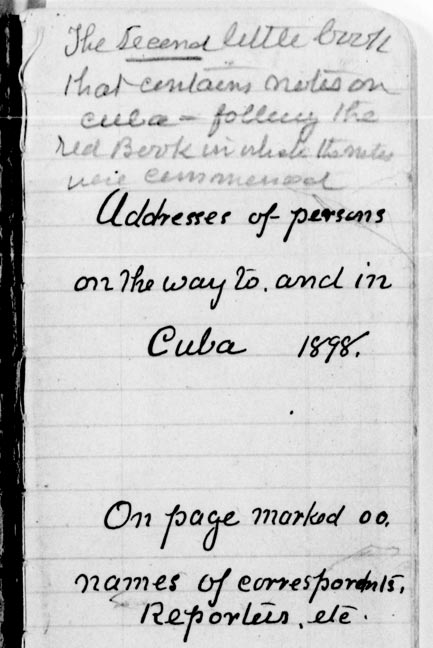 The Second little book
that contains notes on
Cuba – following the
red Book in which the notes
were commenced
Addresses of persons
on the way to, and in
Cuba 1898.
On page marked oo.
names of correspondents,
Reporters, etc.